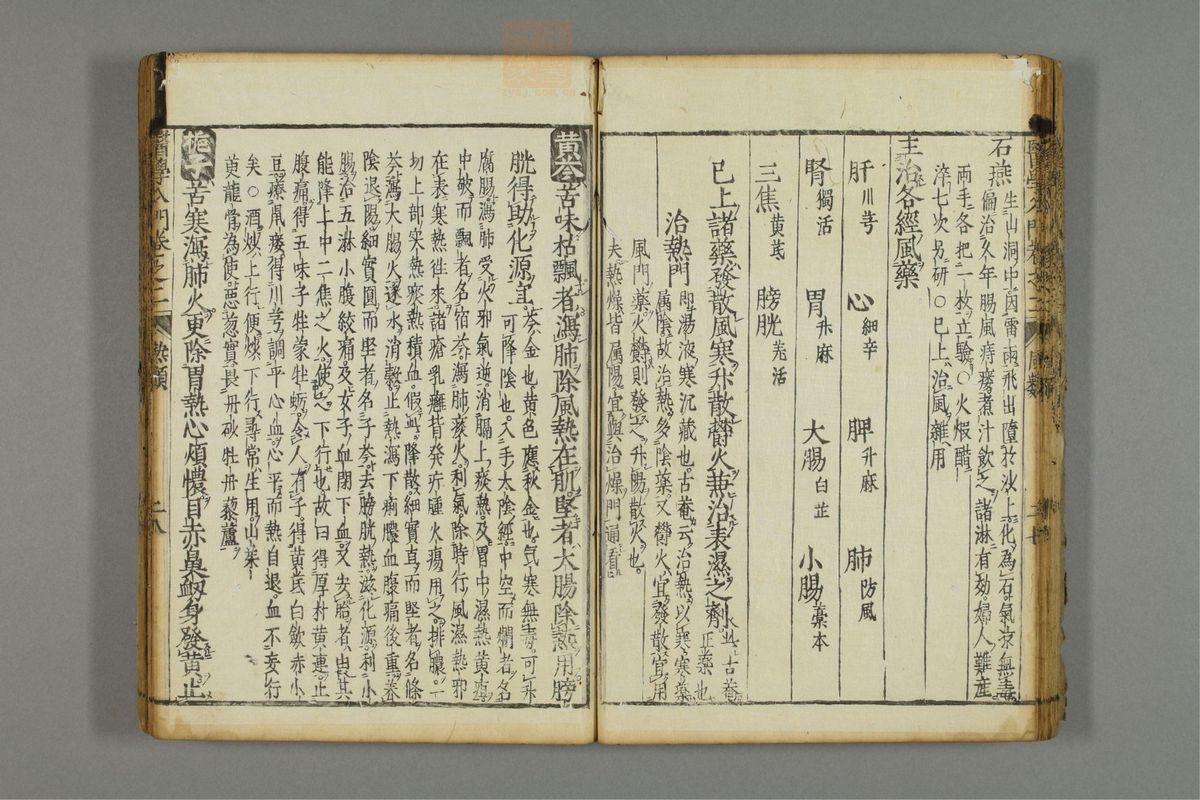 石燕 生山洞中因雷雨飛出墮於沙上化為石氣涼無毒
偏治久年腸風痔瘻煮汁飲之諸淋有効婦人難産
兩手各把一枚立驗○火煆醋
淬七次另研○已上治風雜用
主治各經風藥
肝川芎 心細辛 脾升麻 肺防風
腎獨活 胃升麻 大腸白芷 小腸藁本
三焦黄芪 膀胱羌活
已上諸藥發散風寒升散欝火兼治表濕之劑 古菴正藥也
治熱門 即湯液寒沉藏也古菴云治熱以寒寒藥
属陰故治熱多陰藥又欝火宜發散宜用
風門藥火欝則發之升陽散火也
夫熱燥皆属陽宜與治燥門通看
黄芩苦味枯飄者瀉肺除風熱在肌堅者大腸除熱用膀
胱得助化源宜 芩金也黄色應秋金也气寒無毒可升
可降陰也入手太陰經中空而爛者名
腐腸瀉肺受火邪氣逆消膈上痰熱及胃中濕熱黄疸
中破而飄者名宿芩瀉肺痰火利氣除時行風濕熱邪
在表寒熱往來諸瘡乳癰背發疔腫火瘍用之排膿一
切上部実熱瘀熱積血假此降散細實直而堅者名條
芩瀉大腸火逐水消穀止熱瀉下痢膿血腹痛後重養
陰退陽細實圓而堅者名子芩去膀胱熱滋化源利小
腸治五淋小腹絞痛及女子血閉下血又安胎者由其
能降上中二焦之火使之下行也故曰得厚朴黄連止
腹痛得五味子牡蒙牡蛎令人有子得黄芪白歛赤小
豆療鼠瘻得川芎調平心血心平而熱自退血不妄行
矣○酒炒上行便炒下行尋常生用山茱
萸龍骨為使惡葱實畏丹砂牡丹藜蘆
梔子苦寒瀉肺火更除胃熱心煩懊目赤鼻衂身發黄止
醫學入門卷之二 熱類 二八